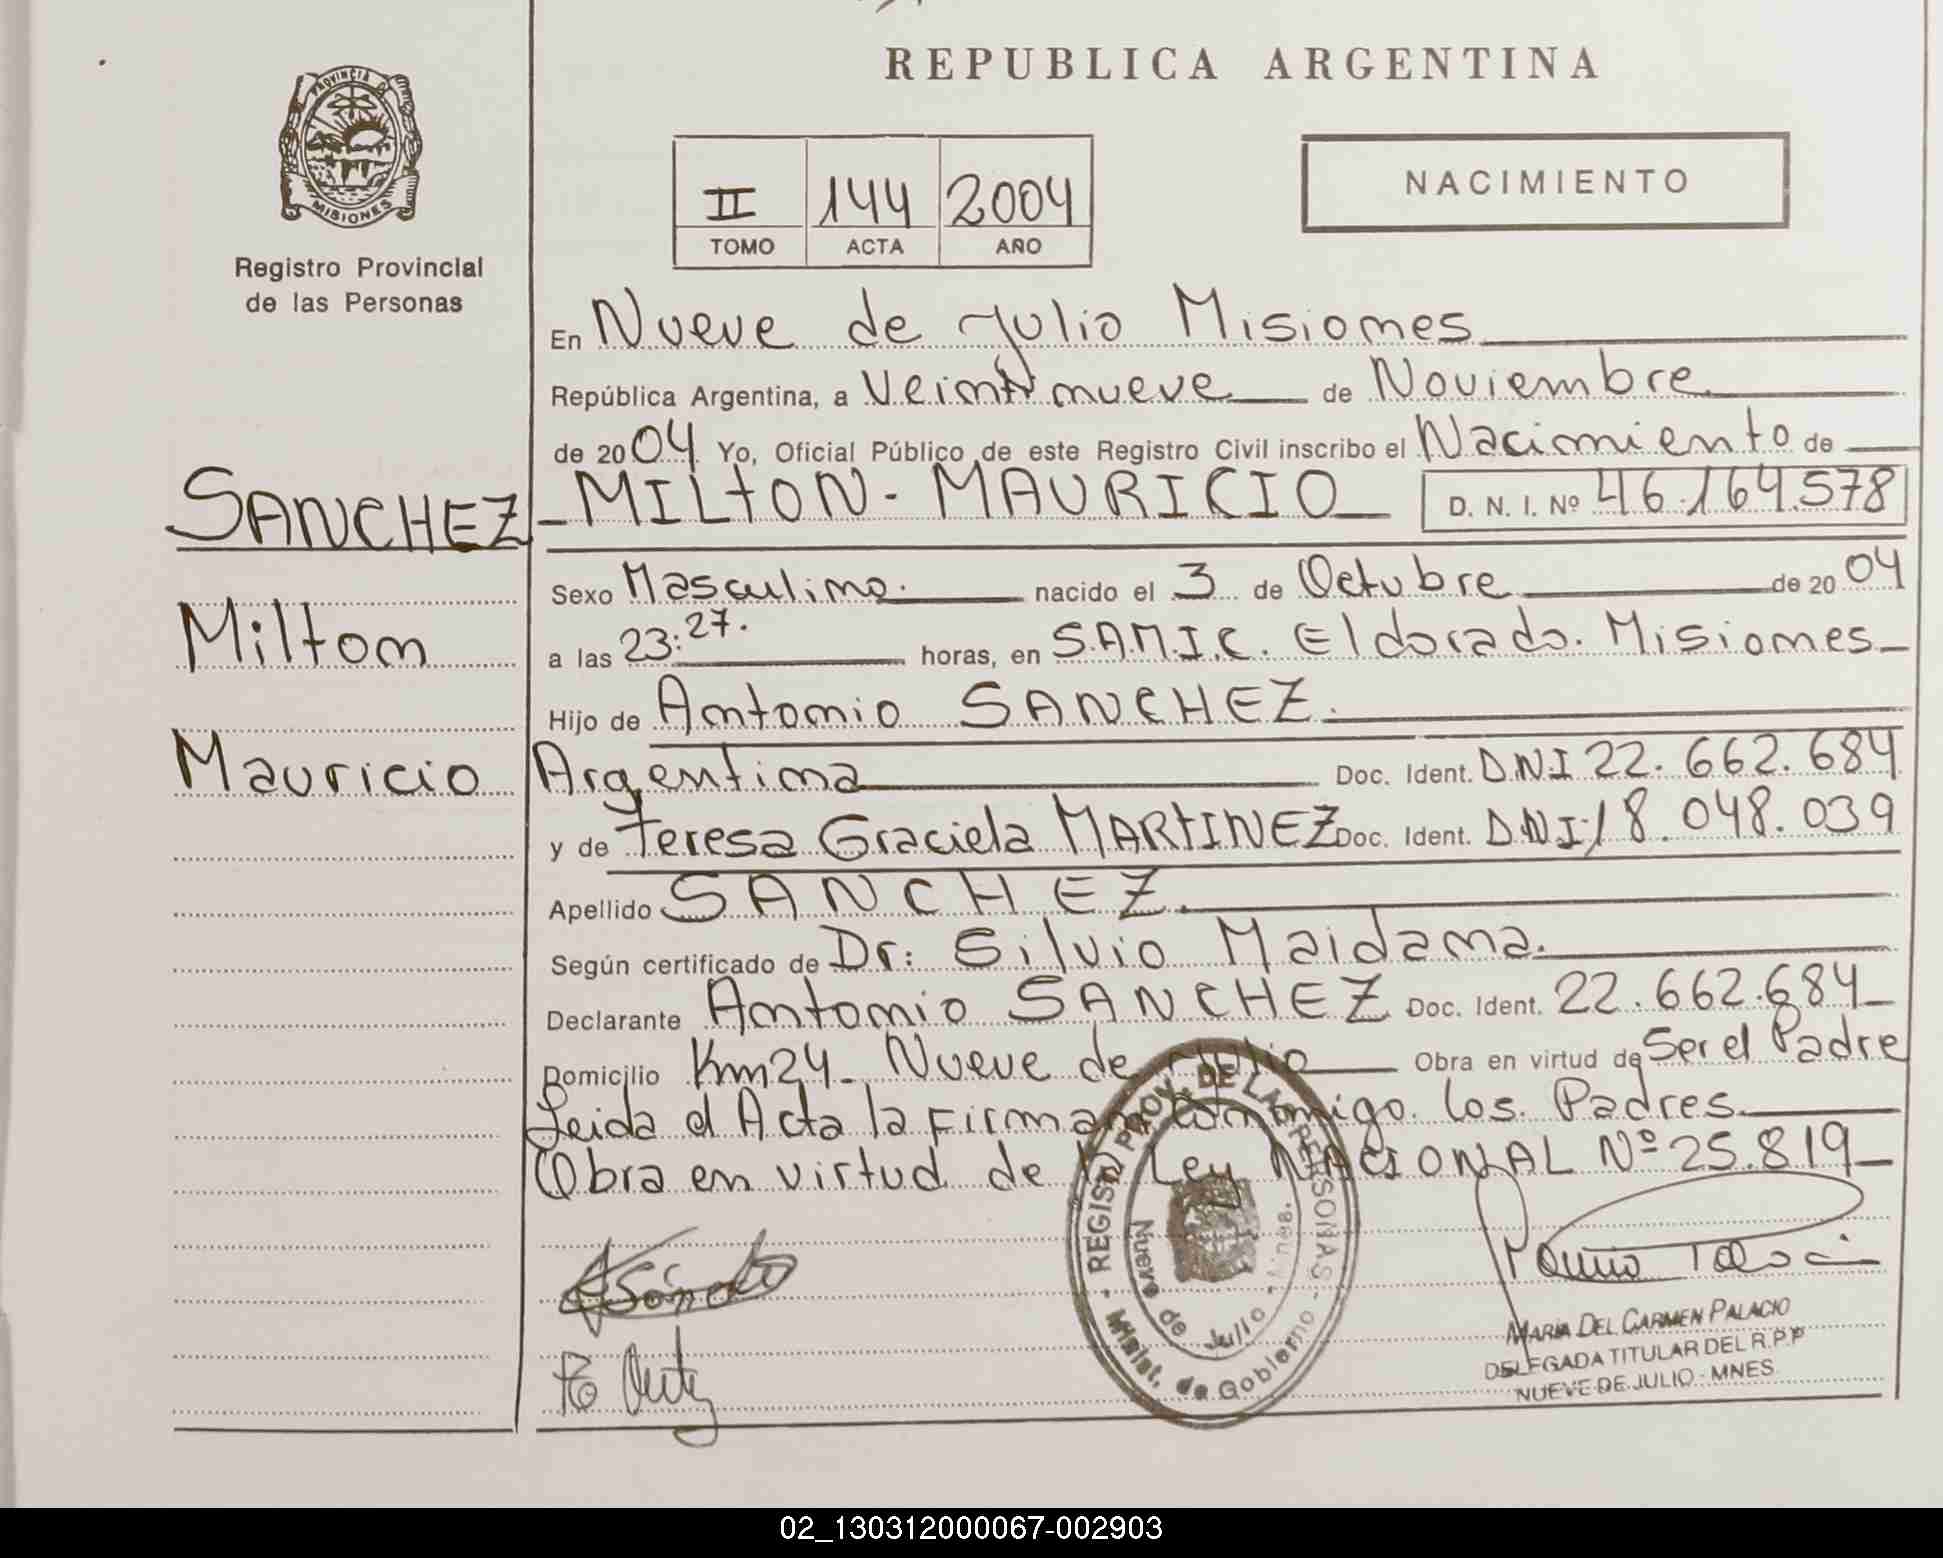 REPUBLICA ARGENTINA
PROVINCIA DE
MISIONES
Registro Provincial
de las Personas
II 144 2004
TOMO ACTA AÑO
NACIMIENTO
En Nueve de Julio Misiones
República Argentina, a Veintinueve de Noviembre
de 2004 Yo, Oficial Público de este Registro Civil inscribo el Nacimiento de
SANCHEZ
Milton
Mauricio
MILTON - MAURICIO D. N. I. Nº 46.164.578
Sexo Masculino. nacido el 3 de Octubre de 2004
a las 23:27. horas, en S.A.M.I.C. Eldorado. Misiones
Hijo de Antonio SANCHEZ.
Argentina Doc. Ident. D.N.I 22.662.684
y de Teresa Graciela MARTINEZ Doc. Ident. D.N.I 18.048.039
Apellido SANCHEZ.
Según certificado de Dr: Silvio Maidana.
Declarante Antonio SANCHEZ Doc. Ident. 22.662.684
Domicilio Km24 - Nueve de Julio Obra en virtud de Ser el Padre
Leida el Acta la Firman conmigo los Padres
Obra en virtud de la Ley NACIONAL Nº 25.819
REGIST. PROV. DE LAS PERSONAS
Nueve de Julio - Mnes.
Minist. de Gobierno
MARIA DEL CARMEN PALACIO
DELEGADA TITULAR DEL R.P.P
NUEVE DE JULIO - MNES.
02_130312000067-002903